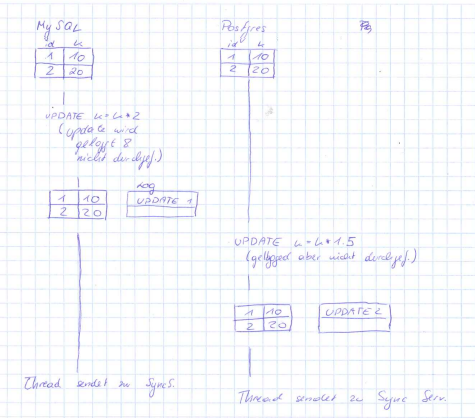 MySQL
id k
1 10
2 20
UPDATE k=k*2
(update wird
geloggt &
nicht durchgef.)
Log
1 10 UPDATE 1
2 20
Thread sendet zu SyncS.
Postgres
id k
1 10
2 20
UPDATE k=k*1.5
(gelogged aber nicht durchgef.)
1 10 UPDATE 2
2 20
Thread sendet zu Sync Serv.